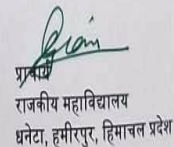 प्राचार्य
राजकीय महाविद्यालय
धनेटा, हमीरपुर, हिमाचल प्रदेश